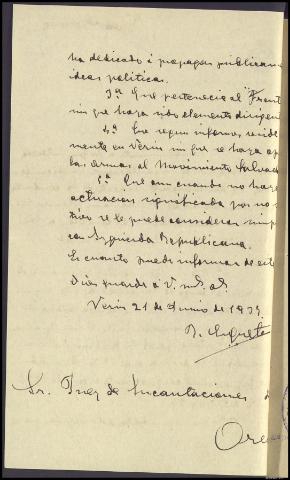 ha dedicado á propagar publicam
ideas politicas.
3ª Que pertenecia al "Frent
ni que haya sido elemento dirigen
4ª Que segun informes, reside
mente en Verin ni que se haya op
las armas al Movimiento Salvado
5ª Que aun cuando no haya
actuacion significada por
tivo se le puede considerar simp
con Izquierda Republicana.
Es cuanto puedo informar de
Dios guarde á V. m. a.
Verin 21 de Junio de 193
Sr. Juez de Incautaciones d
Ore